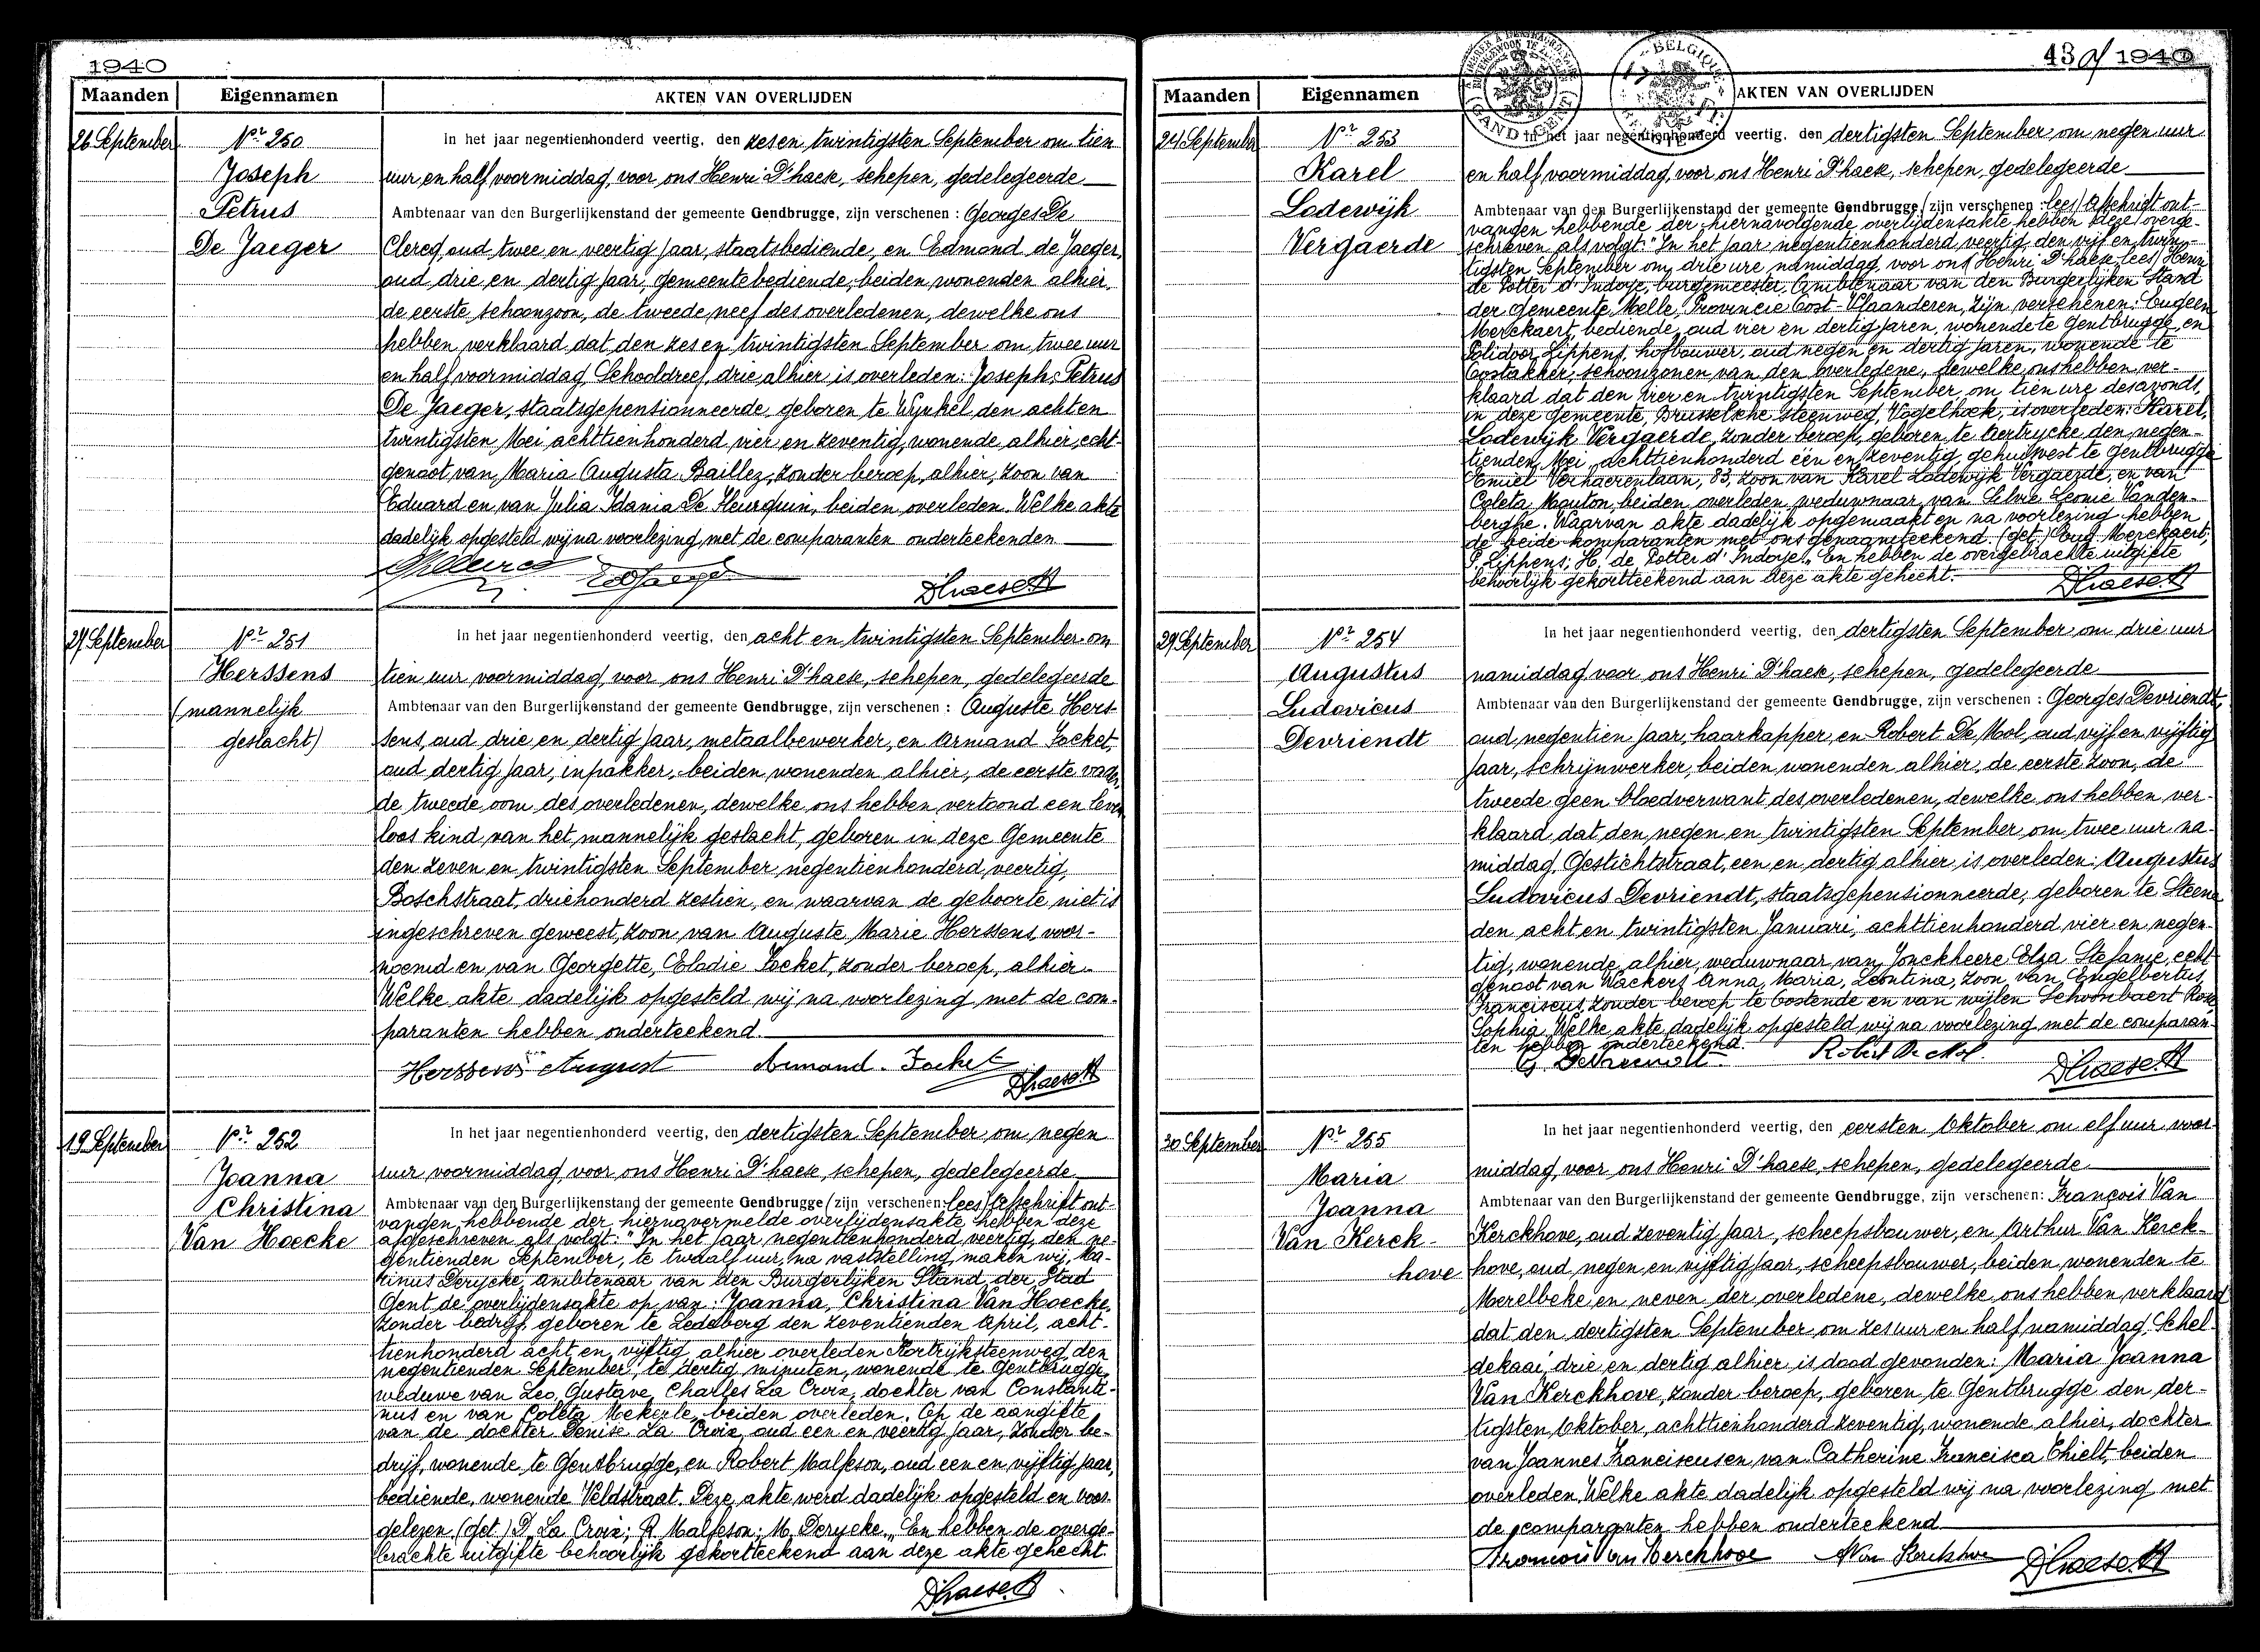 1940
Maanden Eigennamen AKTEN VAN OVERLIJDEN
26 September Nr 250 In het jaar negentienhonderd veertig, den zesen twintigsten September om tien
Joseph uur en half voormiddag, voor ons Henri D'haese, schepen, gedelegeerde
Petrus Ambtenaar van den Burgerlijkenstand der gemeente Gendbrugge, zijn verschenen : Georges De
De Jaeger Clercq, oud twee en veertig jaar, staatsbediende, en Edmond de Jaeger,
oud drie en dertig jaar, gemeentebediende, beiden wonenden alhier,
de eerste schoonzoon, de tweede neef des overledenen, dewelke ons
hebben verklaard dat den zes en twintigsten September om twee uur
en half voormiddag, Schooldreef, drie alhier is overleden: Joseph, Petrus
De Jaeger, staatsgepensionneerde, geboren te Wynkel den achten
twintigsten Mei achttienhonderd vier en zeventig, wonende alhier, echt-
genoot van Maria Augusta Baillez, zonder beroep, alhier, zoon van
Eduard en van Julia Idania De Heurquin, beiden overleden. Welke akte
dadelijk opgesteld wij na voorlezing met de comparanten onderteekenden
D'haese H
27 September Nr 251 In het jaar negentienhonderd veertig, den acht en twintigsten September om
Herssens tien uur voormiddag, voor ons Henri D'haese, schepen, gedelegeerde
(mannelijk Ambtenaar van den Burgerlijkenstand der gemeente Gendbrugge, zijn verschenen : Auguste Hers-
geslacht) sens, oud drie en dertig jaar, metaalbewerker, en Armand Jocket,
oud dertig jaar, inpakker, beiden wonenden alhier, de eerste vader,
de tweede oom des overledenen, dewelke ons hebben vertoond een leven-
loos kind van het mannelijk geslacht, geboren in deze Gemeente
den zeven en twintigsten September negentienhonderd veertig,
Boschstraat, driehonderd zestien, en waarvan de geboorte niet is
ingeschreven geweest, zoon van Auguste Marie Herssens, voor-
noemd en van Georgette, Elodie Jocket, zonder beroep, alhier.
Welke akte dadelijk opgesteld wij na voorlezing met de com-
paranten hebben onderteekend.
Herssens August Armand. Jocket D'haese H
19 September Nr 252 In het jaar negentienhonderd veertig, den dertigsten September om negen
Joanna uur voormiddag, voor ons Henri D'haese, schepen, gedelegeerde
Christina Ambtenaar van den Burgerlijkenstand der gemeente Gendbrugge (zijn verschenen: lees) Afschrift ont-
vangen hebbende der hiernavermelde overlijdensakte hebben deze
Van Hoecke afgeschreven als volgt: "In het jaar negentienhonderd veertig, den ne-
gentienden September, te twaalf uur, na vaststelling maken wij, Ma-
rinus Derycke, ambtenaar van den Burgerlijken Stand der Stad
Gent de overlijdensakte op van: Joanna, Christina Van Hoecke,
zonder bedrijf, geboren te Ledeberg den zeventienden April, acht-
tienhonderd acht en vijftig, alhier overleden Kortrijksteenweg, den
negentienden September, te dertig minuten, wonende te Gentbrugge,
weduwe van Leo, Gustave, Charles La Croix, dochter van Constanti-
nus en van Coleta Mekerle, beiden overleden. Op de aangifte
van de dochter Denise La Croix, oud een en veertig jaar, zonder be-
drijf, wonende te Gentbrugge, en Robert Malfeson, oud een en vijftig jaar,
bediende, wonende Veldstraat. Deze akte werd dadelijk opgesteld en voor-
gelezen. (get.) D. La Croix; R. Malfeson; M. Derycke." En hebben de overge-
brachte uitgifte behoorlijk gekortteekend aan deze akte gehecht.
D'haese H
43 1940
Maanden Eigennamen AKTEN VAN OVERLIJDEN
BELGIQUE
24 September Nr 253 In het jaar negentienhonderd veertig, den dertigsten September om negen uur
Karel en half voormiddag, voor ons Henri D'haese, schepen, gedelegeerde
Lodewijk Ambtenaar van den Burgerlijkenstand der gemeente Gendbrugge (zijn verschenen : lees) Afschrift ont-
vangen hebbende der hiernavolgende overlijdensakte hebben deze overge-
Vergaerde schreven als volgt: "In het jaar negentienhonderd veertig, den vijf en twin-
tigsten September om drie ure namiddag, voor ons (Henri D'haese lees) Henri
de Potter d'Indoye, burgemeester, Ambtenaar van den Burgerlijken Stand
der Gemeente Melle, Provincie Oost-Vlaanderen, zijn verschenen: Eugeen
Merckaert, bediende, oud vier en dertig jaren, wonende te Gentbrugge, en
Polidoor Lippens, hofbouwer, oud negen en dertig jaren, wonende te
Oostakker, schoonzonen van den overledene, dewelke ons hebben ver-
klaard dat den vier en twintigsten September, om tien ure des avonds,
in deze gemeente, Brusselsche steenweg, Vogelhoek, is overleden: Karel,
Lodewijk Vergaerde, zonder beroep, geboren te Aertrycke den negen-
tienden Mei achttienhonderd een en zeventig, gehuisvest te Gentbrugge
Emiel Verhaerenlaan, 83, zoon van Karel Lodewijk Vergaerde, en van
Coleta Mouton, beiden overleden, weduwnaar van Silvie Leonie Vanden-
berghe. Waarvan akte dadelijk opgemaakt en na voorlezing hebben
de beide komparanten met ons genaamteekend. (get.) Eug. Merckaert;
P. Lippens; H. de Potter d'Indoye." En hebben de overgebrachte uitgifte
behoorlijk gekortteekend aan deze akte gehecht.
D'haese H
29 September Nr 254 In het jaar negentienhonderd veertig, den dertigsten September om drie uur
Augustus namiddag voor ons Henri D'haese, schepen, gedelegeerde
Ludovicus Ambtenaar van den Burgerlijkenstand der gemeente Gendbrugge, zijn verschenen : Georges Devriendt,
Devriendt oud negentien jaar, haarkapper, en Robert De Mol, oud vijf en vijftig
jaar, schrijnwerker, beiden wonenden alhier, de eerste zoon, de
tweede geen bloedverwant des overledenen, dewelke ons hebben ver-
klaard dat den negen en twintigsten September, om twee uur na-
middag, Gestichtstraat, een en dertig alhier is overleden: Augustus
Ludovicus Devriendt, staatsgepensionneerde, geboren te Steene
den acht en twintigsten Januari, achttienhonderd vier en negen-
tig, wonende alhier, weduwnaar van Jonckheere Elza Stefanie, echt-
genoot van Wackers Anna, Maria, Leontina, zoon van Engelbertus,
Franciscus, zonder beroep te Oostende en van wijlen Schoonbaert Rosa
Sophia. Welke akte dadelijk opgesteld wij na voorlezing met de comparan-
ten hebben onderteekend.
G. Devriendt Robert De Mol. D'haese H
30 September Nr 255 In het jaar negentienhonderd veertig, den eersten Oktober om elf uur voor-
Maria middag, voor ons Henri D'haese, schepen, gedelegeerde
Joanna Ambtenaar van den Burgerlijkenstand der gemeente Gendbrugge, zijn verschenen: François Van
Van Kerck- Kerckhove, oud zeventig jaar, scheepsbouwer, en Arthur Van Kerck-
hove hove, oud negen en vijftig jaar, scheepsbouwer, beiden wonenden te
Merelbeke, en neven der overledene, dewelke ons hebben verklaard
dat den dertigsten September om zes uur en half namiddag, Schel-
dekaai, drie en dertig alhier is dood gevonden: Maria Joanna
Van Kerckhove, zonder beroep, geboren te Gentbrugge den der-
tigsten Oktober, achttienhonderd zeventig, wonende alhier, dochter
van Joannes Franciscus en van Catherine Francisca Thielt, beiden
overleden. Welke akte dadelijk opgesteld wij na voorlezing met
de comparanten hebben onderteekend
François Van Kerckhove A Van Kerckhove D'haese H